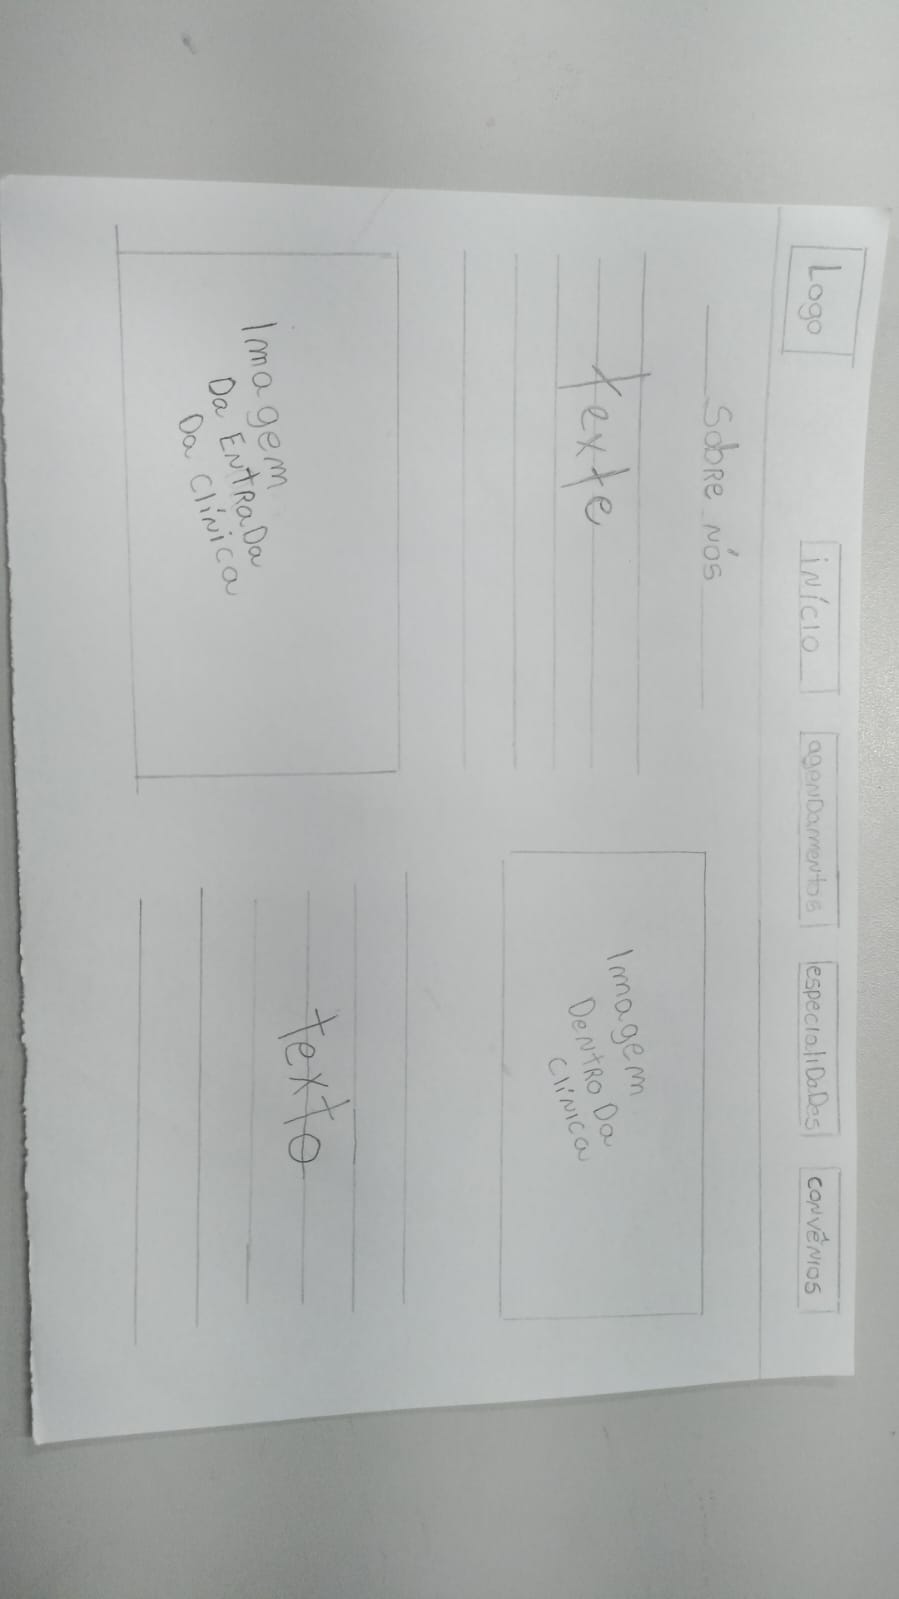 Logo
início
agenDamentos
especialiDaDes
convênios
Sobre nós
texte
Imagem
Dentro Da
Clínica
Imagem
Da EntRaDa
Da Clínica
texto